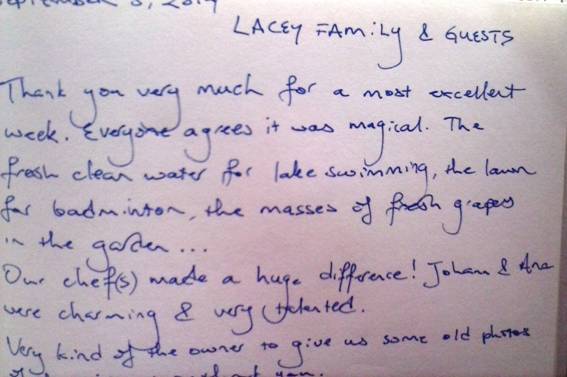 September 5, 2014
LACEY FAMILY & GUESTS
Thank you very much for a most excellent
week. Everyone agrees it was magical. The
fresh clean water for lake swimming, the lawn
for badminton, the masses of fresh grapes
in the garden...
Our chef(s) made a huge difference! Johann & Ana
were charming & very talented.
Very kind of the owner to give us some old photos
of